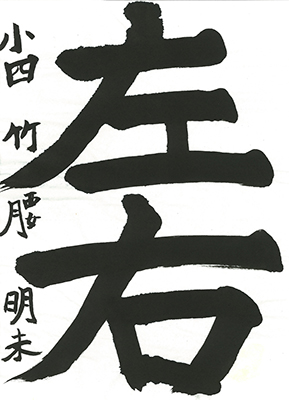 左右
小四 竹腰 明未